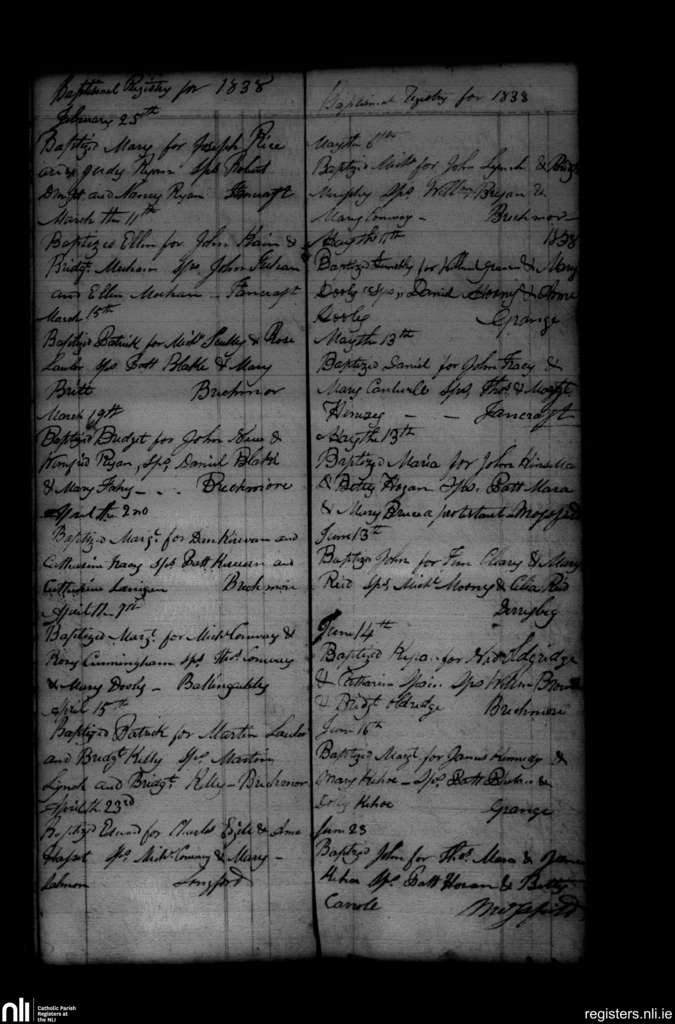 Baptismal Registry for 1838
February 25th
Baptized Mary for Joseph Rice
and Judy Ryan Sps
and Nancy Ryan Fancroft
March the 11th
Baptized Ellen for John &
Bridgt Meehan Sps John
and Ellen Meehan - Fancroft
March 15th
Baptized Patrick for Michl Scully & Rose
Lawlor Sps Patt Blake & Mary
Britt Breehmor
March 19th
Baptized Bridget for John &
Winefrid Ryan, Sps Daniel
& Mary Fahy - - - Breehmore
April the 2nd
Baptized Margt for Dan Kirwan and
Catherine Tracy Sps Patt Kirwan and
Catherine Lanigan Brehmor
April the
Baptized Margt for Michl Conway &
Rosy Cunningham Sps Thos Conway
& Mary Dooly - Ballingubby
April 15th
Baptized Patrick for Martin Lawlor
and Bridgt Kelly Sps Martin
Lynch and Bridgt Kelly - Brehmor
April the 23rd
Baptized Edward for Charles & Anne
Sps Michl Conway & Mary -
Salmon Longford
Baptismal Registry for 1838
May the 6th
Baptized Michl for John Lynch & Bridgt
Murphy Sps Willm Bryan &
Mary Conway - Brehmore
May the 11th 1838
Baptized for & Mary
Dooly Sps, Daniel & Anne
Dooly Grange
May the 13th
Baptized Daniel for John Tracy &
Mary Cantwell Sps, Thos & Margt
- - Fancroft
May the 13th
Baptized Maria for John
& Betsy Hogan Sps. Patt Mara
& Mary a protestant - Mossfield
June 13th
Baptized John for Tim Cleary & Mary
Reid Sps, Michl Mooney & Celia Reid
Derrybeg
June 14th
Baptized for Oldridge
& Catharine Spain. Sps Willm
& Bridgt Oldridge Brehmore
June 16th
Baptized Margt for James Kennedy &
Mary Kehoe - Sps, Patt &
Kehoe Grange
June 23
Baptized John for Thos. Mara &
Kehoe Sps. Patt Horan & Betty
Carole Mossfield
nli
Catholic Parish
Registers at
the NLI
registers.nli.ie